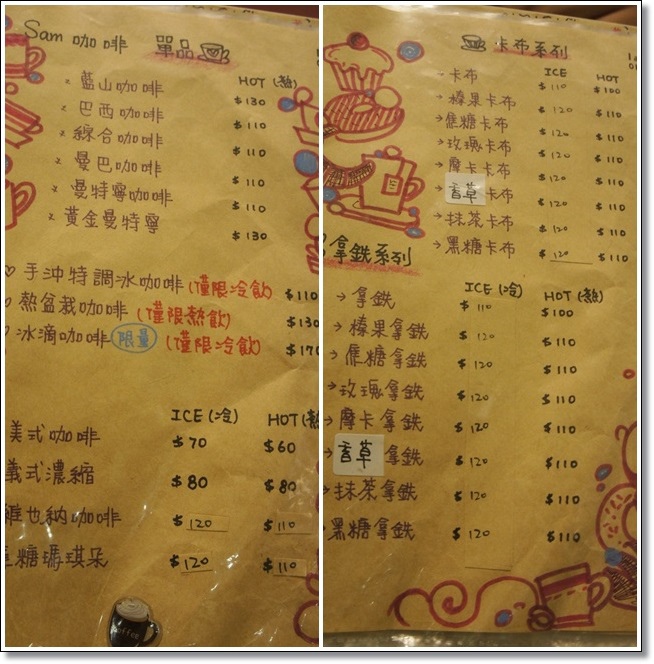 Sam 咖啡 單品
HOT (熱)
藍山咖啡 $130
巴西咖啡 $110
綜合咖啡 $110
曼巴咖啡 $110
曼特寧咖啡 $110
黃金曼特寧 $130
手沖特調冰咖啡(僅限冷飲) $110
熱盆栽咖啡(僅限熱飲) $130
冰滴咖啡 限量 (僅限冷飲) $170
ICE (冷) HOT (熱
美式咖啡 $70 $60
義式濃縮 $80 $80
維也納咖啡 $120 $110
焦糖瑪琪朵 $120 $110
coffee
卡布系列
ICE HOT
卡布 $110 $100
榛果卡布 $120 $110
焦糖卡布 $120 $110
玫瑰卡布 $120 $110
摩卡卡布 $120 $110
香草卡布 $120 $110
抹茶卡布 $120 $110
黑糖卡布 $120 $110
拿鉄系列
ICE (冷) HOT (熱)
拿鉄 $110 $100
榛果拿鉄 $120 $110
焦糖拿鉄 $120 $110
玫瑰拿鉄 $120 $110
摩卡拿鉄 $120 $110
香草拿鉄 $120 $110
抹茶拿鉄 $120 $110
黑糖拿鉄 $120 $110